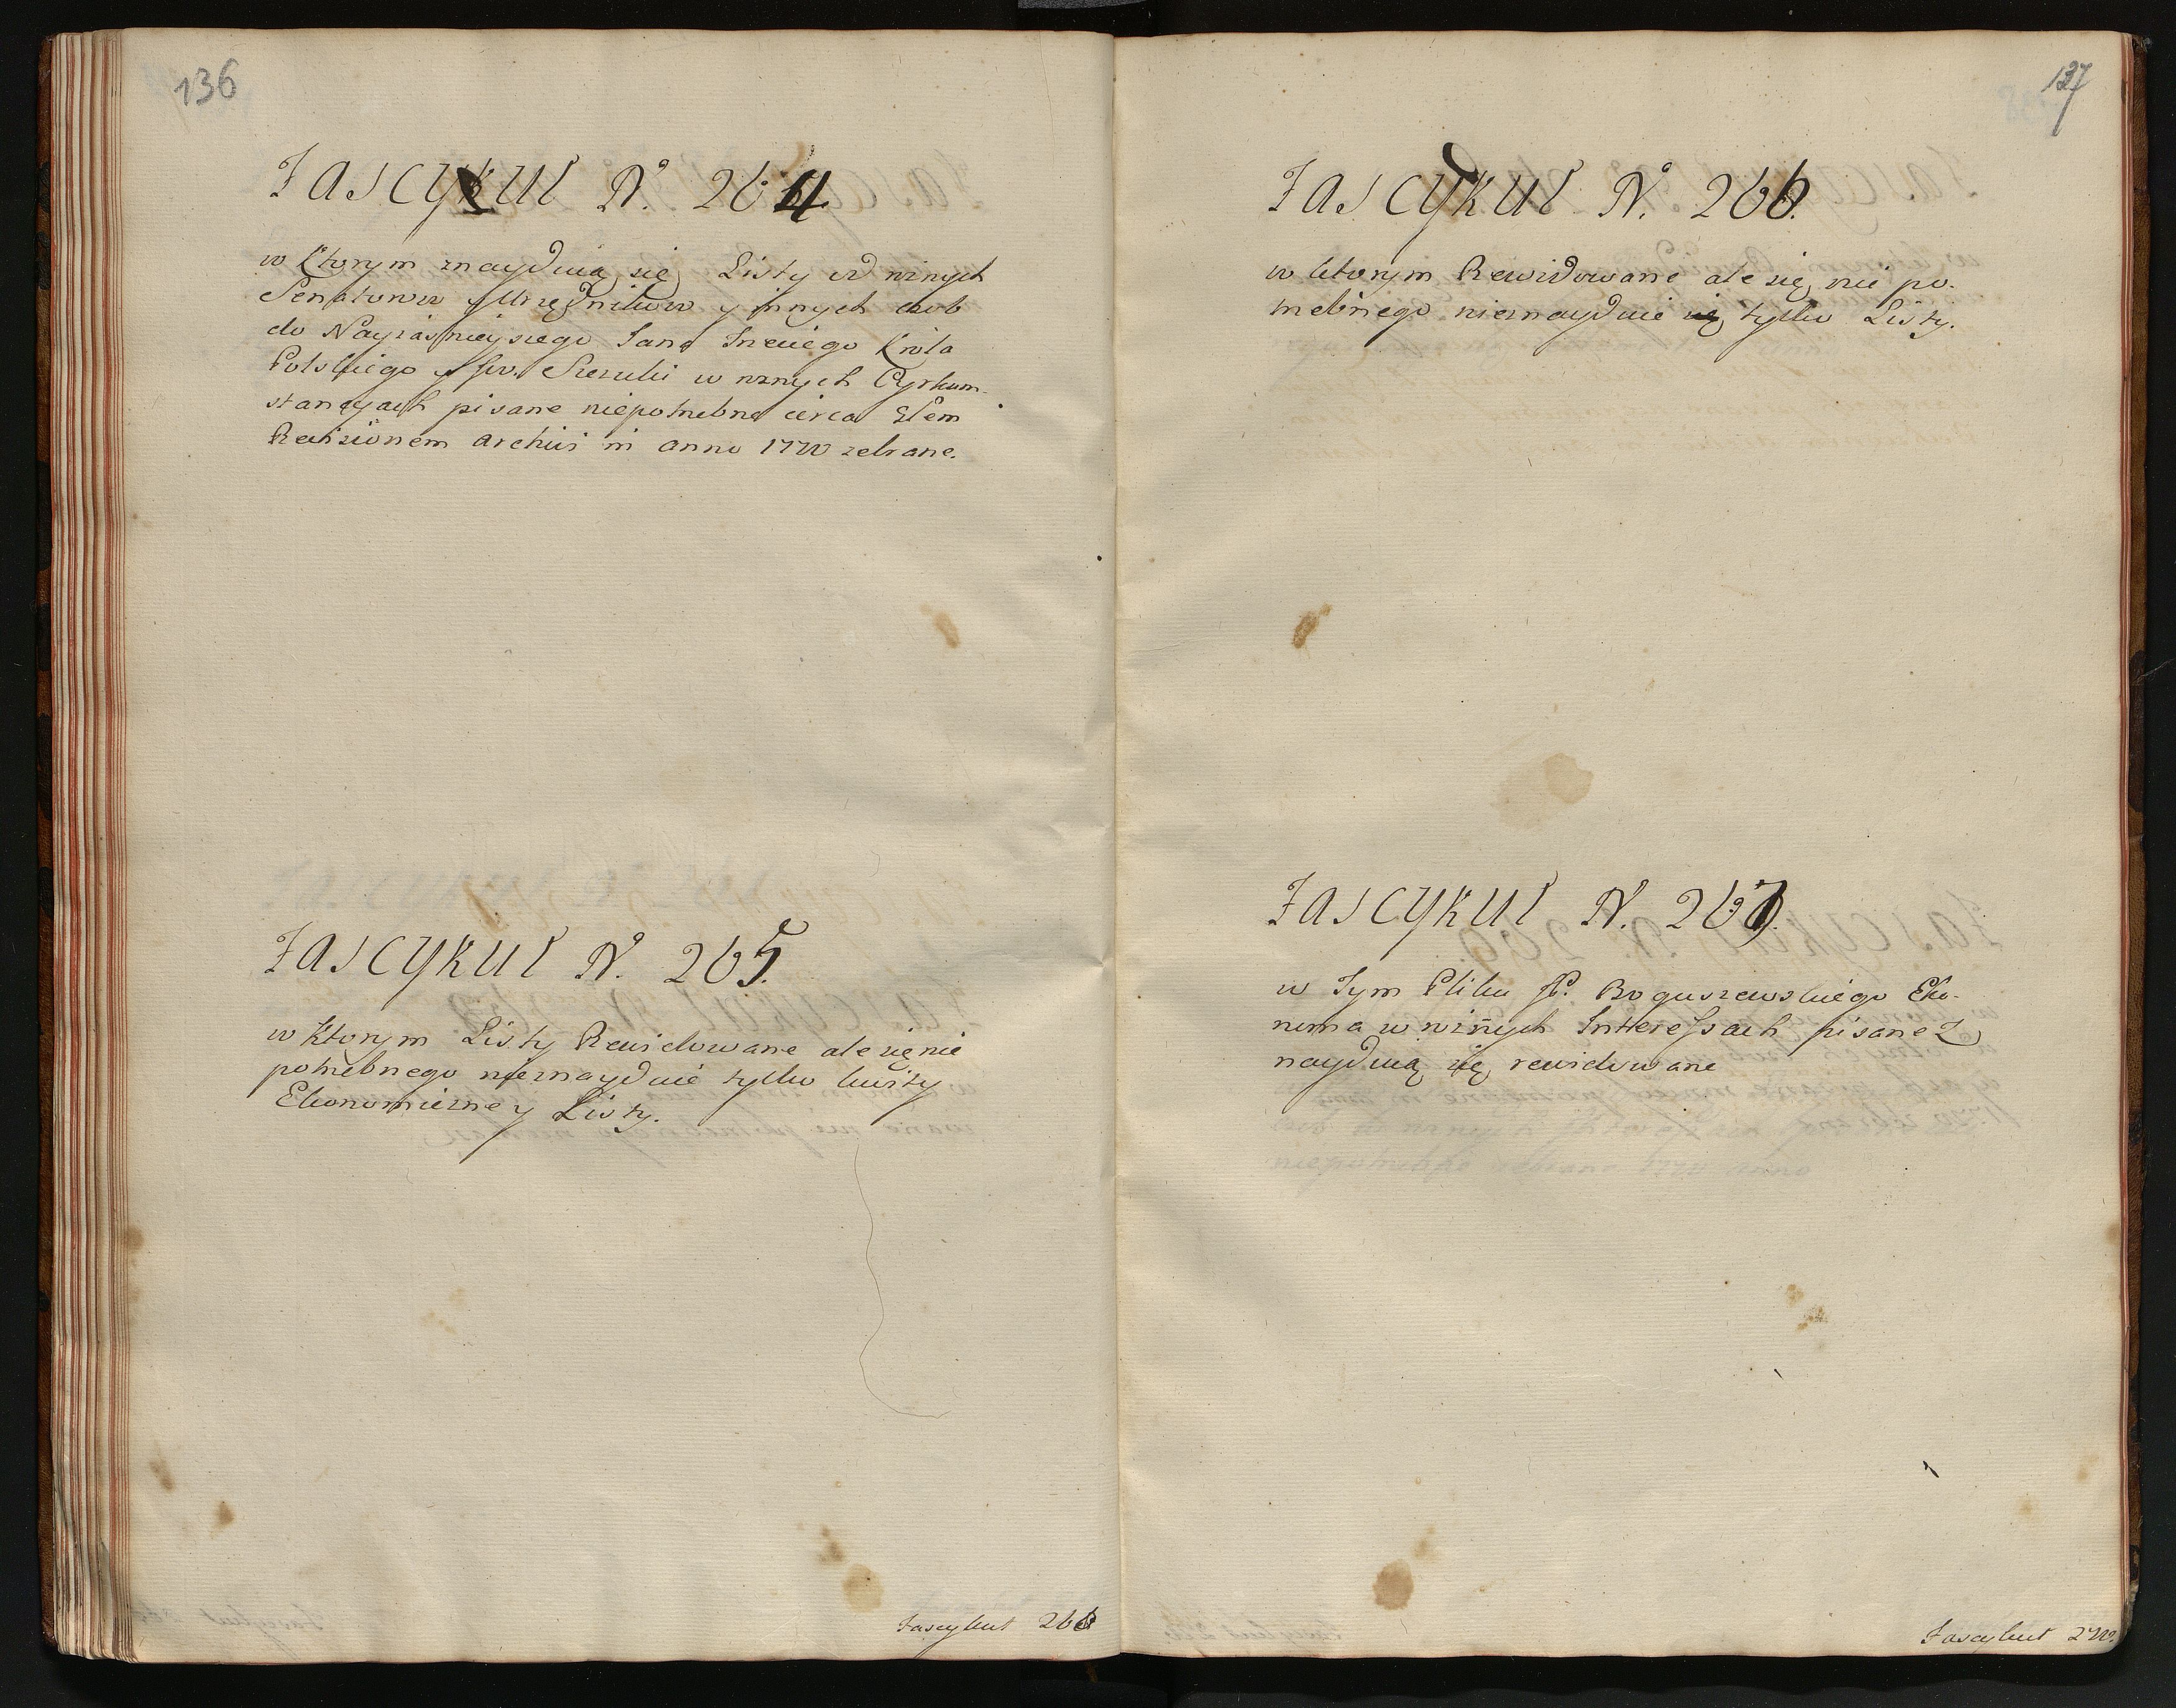 136
Fascykuł N. 264.
w Ktorym znayduią się Listy od roznych
Senatorow y Urzędnikow y innych osob
do Nayiasnieyszego Jana Trzeciego Krola
Polskiego y w roznych Cyrkum-
stancyach pisane niepotrzebne circa
Rewisionem Archivi in anno zebrane.
Fascykuł N. 265.
w Ktorym Listy Rewidowane ale się nic
potrzebnego nieznayduie tylko kwity
Ekonomiczne y Listy.
Fascykuł 266
137
Fascykuł N. 266.
w ktorym Rewidowane ale się nic po-
trzebnego nieznayduie tylko Listy.
Fascykuł N. 267.
w Tym Pliku P. Boguszewskiego Eko-
noma w rożnych Interessach pisane Z
nayduią się rewidowane
Fascykuł